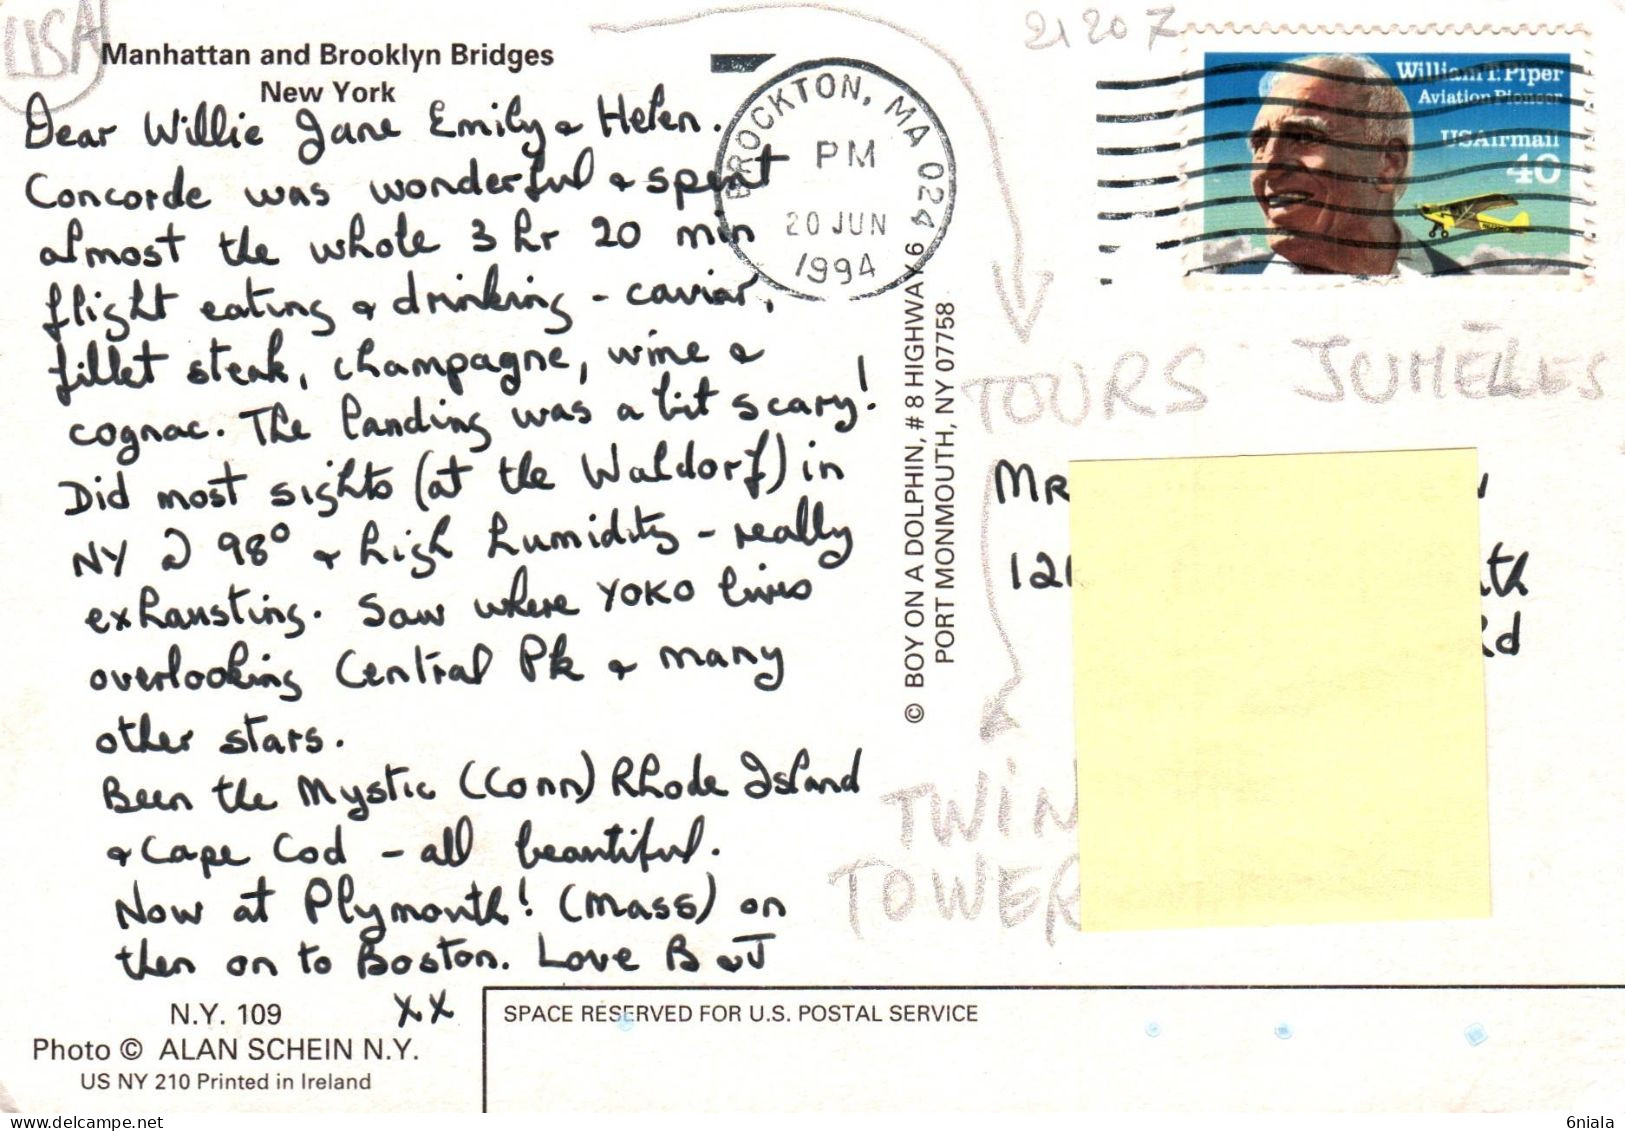 USA
Manhattan and Brooklyn Bridges
New York
Dear Willie Jane Emily & Helen.
Concorde was wonderful & spent
almost the whole 3 hr 20 min
flight eating & drinking - caviar,
fillet steak, champagne, wine &
cognac. The landing was a bit scary!
Did most sights (at the Waldorf) in
NY @ 98° & high humidity - really
exhausting. Saw where YOKO lives
overlooking Central Pk & many
other stars.
Been the Mystic (Conn) Rhode Island
& Cape Cod - all beautiful.
Now at Plymouth! (Mass) on
then on to Boston. Love B & J
xx
N.Y. 109
Photo © ALAN SCHEIN N.Y.
US NY 210 Printed in Ireland
© BOY ON A DOLPHIN, # 8 HIGHWAY 6
PORT MONMOUTH, NY 07758
BROCKTON, MA 024
PM
20 JUN
1994
21207
William T. Piper
Aviation Pioneer
USAirmail
40
TOURS JUMELLES
MR
121
th
Rd
TWIN
TOWER
SPACE RESERVED FOR U.S. POSTAL SERVICE
6niala